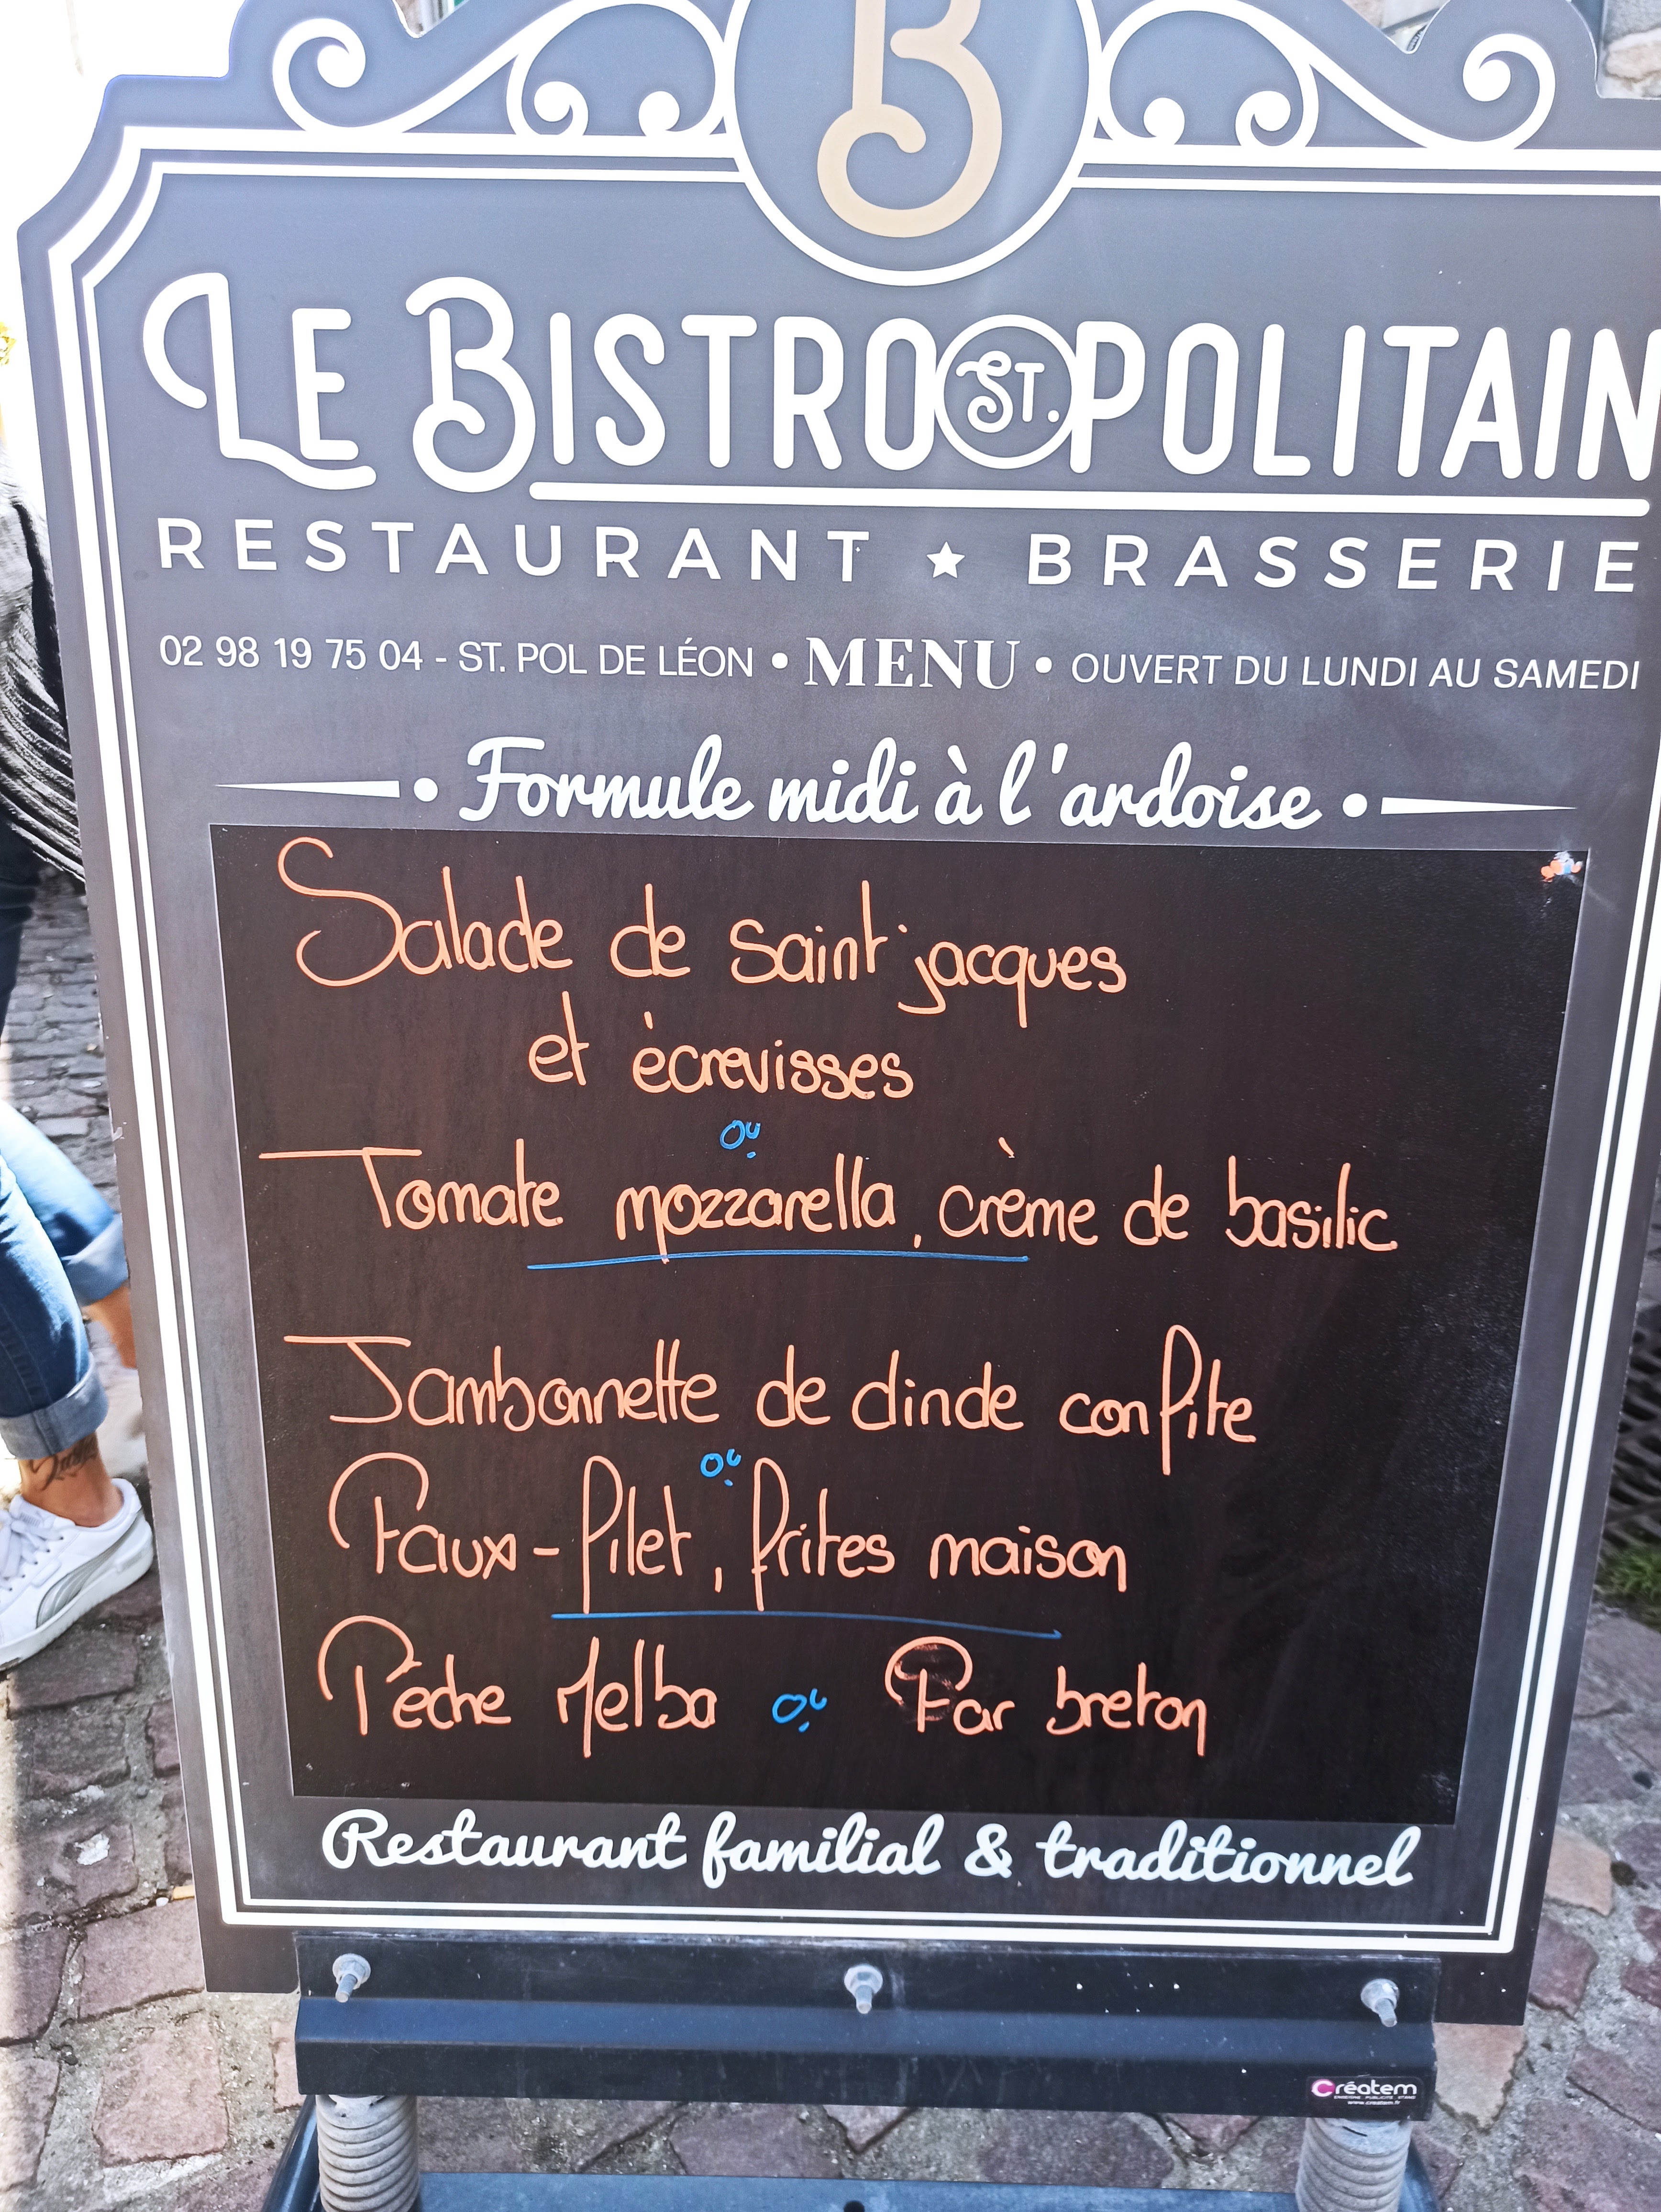 B
LE BISTRO ST. POLITAIN
RESTAURANT ★ BRASSERIE
02 98 19 75 04 - ST. POL DE LÉON • MENU • OUVERT DU LUNDI AU SAMEDI
Formule midi à l'ardoise
Salade de saint jacques
et ècrevisses
ou
Tomate mozzarella, crème de basilic
Jambonnette de dinde confite
ou
Faux-filet, frites maison
Pèche Melba ou Far breton
Restaurant familial & traditionnel
Créatem
www.createm.fr